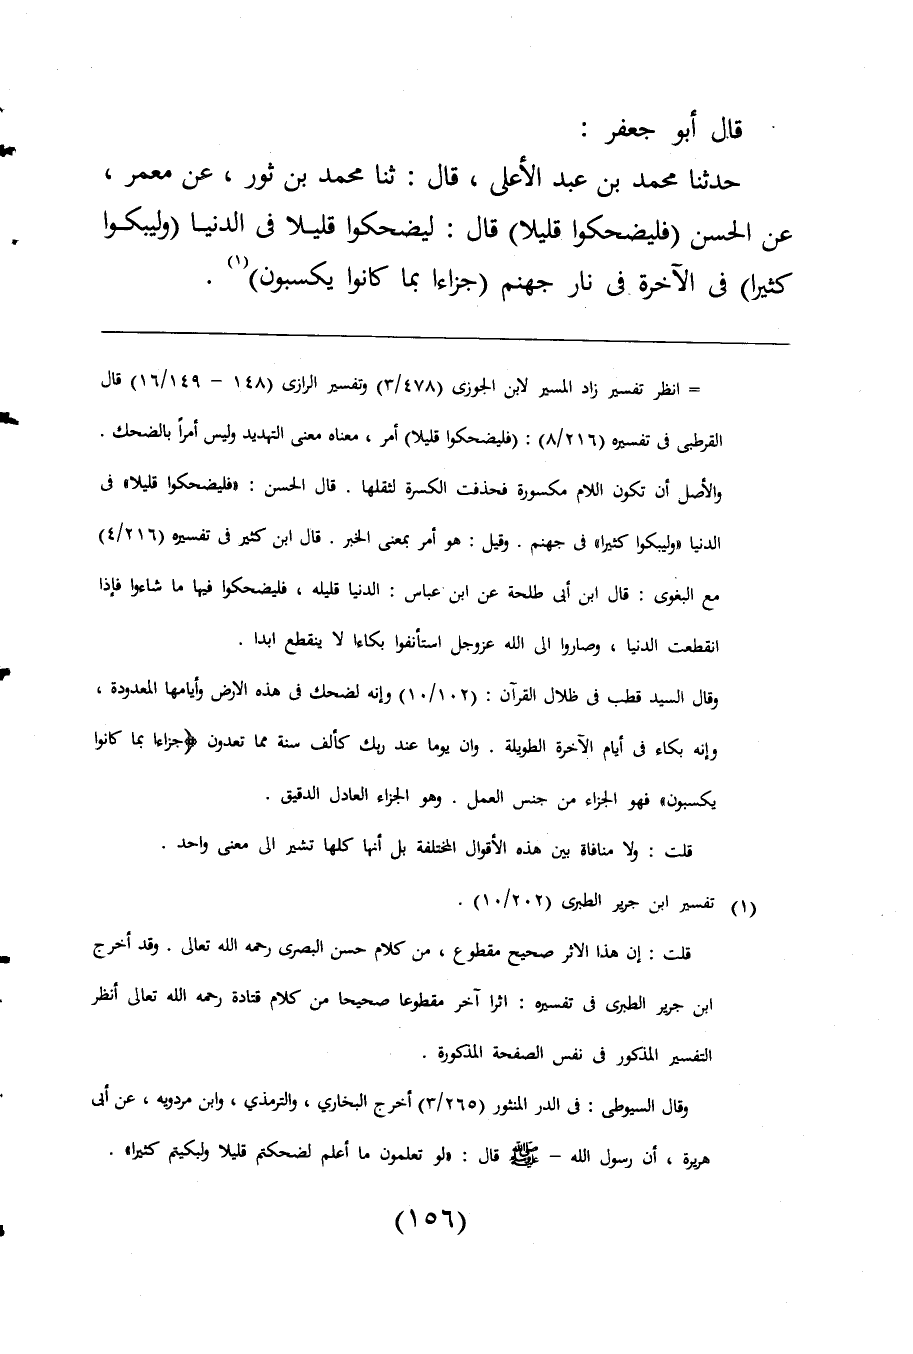 قال أبو جعفر :
حدثنا محمد بن عبد الأعلى ، قال : ثنا محمد بن ثور ، عن معمر ،
عن الحسن (فليضحكوا قليلا) قال : ليضحكوا قليلا فى الدنيا (وليبكوا
كثيرا) فى الآخرة فى نار جهنم (جزاءا بما كانوا يكسبون)(١) .
= انظر تفسير زاد المسير لابن الجوزى (٣/٤٧٨) وتفسير الرازى (١٤٨ – ١٦/١٤٩) قال
القرطبى فى تفسيره (٨/٢١٦) : (فليضحكوا قليلا) أمر ، معناه معنى التهديد وليس أمراً بالضحك .
والأصل أن تكون اللام مكسورة فحذفت الكسرة لثقلها . قال الحسن : «فليضحكوا قليلا» فى
الدنيا «وليبكوا كثيرا» فى جهنم . وقيل : هو أمر بمعنى الخبر . قال ابن كثير فى تفسيره (٤/٢١٦)
مع البغوى : قال ابن أبى طلحة عن ابن عباس : الدنيا قليله ، فليضحكوا فيها ما شاءوا فإذا
انقطعت الدنيا ، وصاروا الى الله عزوجل استأنفوا بكاءا لا ينقطع ابدا .
وقال السيد قطب فى ظلال القرآن : (١٠/١٠٢) وإنه لضحك فى هذه الارض وأيامها المعدودة ،
وإنه بكاء فى أيام الآخرة الطويلة . وان يوما عند ربك كألف سنة مما تعدون ﴿جزاءا بما كانوا
يكسبون» فهو الجزاء من جنس العمل . وهو الجزاء العادل الدقيق .
قلت : ولا منافاة بين هذه الأقوال المختلفة بل أنها كلها تشير الى معنى واحد .
(١) تفسير ابن جرير الطبرى (١٠/٢٠٢) .
قلت : إن هذا الاثر صحيح مقطوع ، من كلام حسن البصرى رحمه الله تعالى . وقد أخرج
ابن جرير الطبرى فى تفسيره : اثرا آخر مقطوعا صحيحا من كلام قتادة رحمه الله تعالى أنظر
التفسير المذكور فى نفس الصفحة المذكورة .
وقال السيوطى : فى الدر المنثور (٣/٢٦٥) أخرج البخاري ، والترمذي ، وابن مردويه ، عن أبى
هريرة ، أن رسول الله – ﷺ قال : «لو تعلمون ما أعلم لضحكتم قليلا ولبكيتم كثيرا» .
(١٥٦)